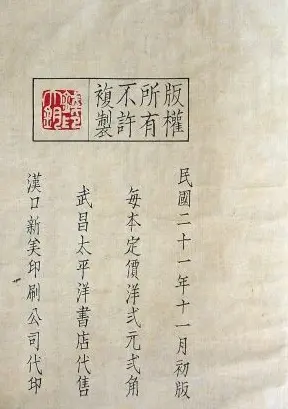 版權
所有
不許
複製
民國二十一年十一月初版
每本定價洋弍元弍角
武昌太平洋書店代售
漢口新美印刷公司代印